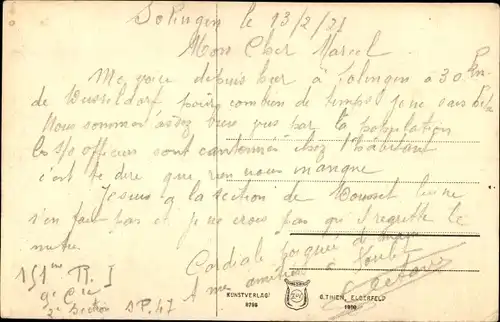 Solingen le 13/2/21
Mon Cher Marcel
Me voici depuis hier à Solingen à 30 Km
de Dusseldorf pour combien de temps je ne sais
Nous sommes assez bien vus par la population
les S/officiers sont cantonnés chez l'habitant
c'est te dire que rien nous manque
Je suis à la section de Housset lui ne
s'en fait pas et je ne crois pas qu'il regrette le
Cordiale poignée de main
151me R. I
9e Cie
2e Section S.P. 47
KUNSTVERLAG
9798
G. THIEN, ELBERFELD
1920